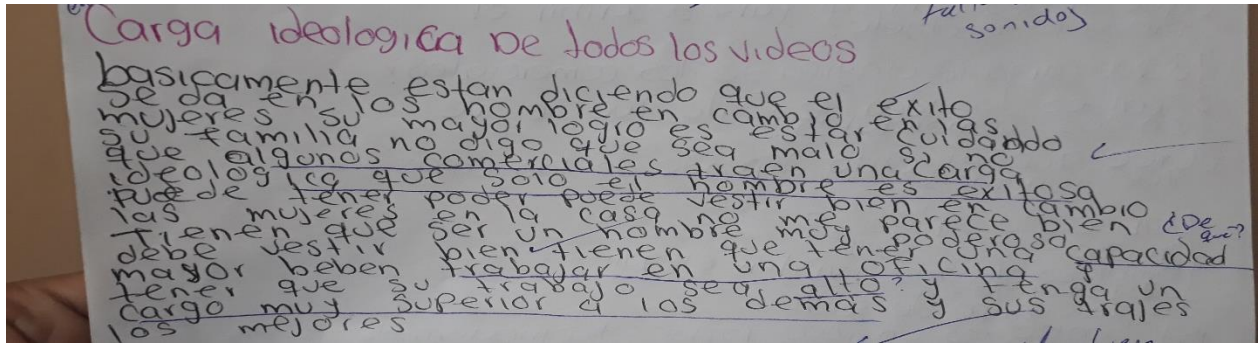 sonidos
Carga ideologica De todos los videos
basicamente estan diciendo que el exito
se da en los hombre en cambio en las
mujeres su mayor logro es estar cuidando
su familia no digo que sea malo si no
que algunos comerciales traen una carga
ideologica que solo el hombre es exitosa
puede tener poder puede vestir bien en cambio
las mujeres en la casa no me parece bien
tienen que ser un hombre muy poderoso ¿De que?
debe vestir bien tienen que tener una capacidad
mayor beben trabajar en una oficina y
tener que su trabajo sea alto? y tenga un
cargo muy superior a los demas y sus trajes
los mejores